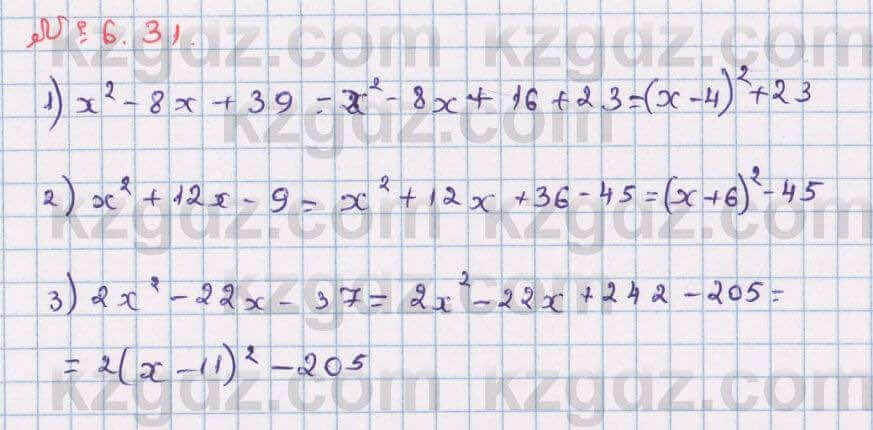 № 6.31.
1) x² - 8x + 39 = x² - 8x + 16 + 23 = (x - 4)² + 23
2) x² + 12x - 9 = x² + 12x + 36 - 45 = (x + 6)² - 45
3) 2x² - 22x - 37 = 2x² - 22x + 242 - 205 =
= 2(x - 11)² - 205
kzgdz.com
kzgdz.com
kzgdz.com
kzgdz.com
kzgdz.com